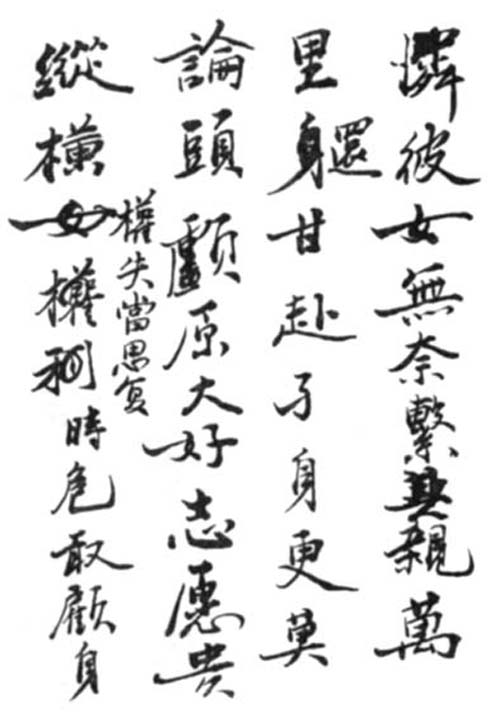 憐彼女無奈繫其親萬
里身還甘赴孑身更莫
論頭顱原大好志愿貴
權失當思复
縱橫女權利時危敢顧身